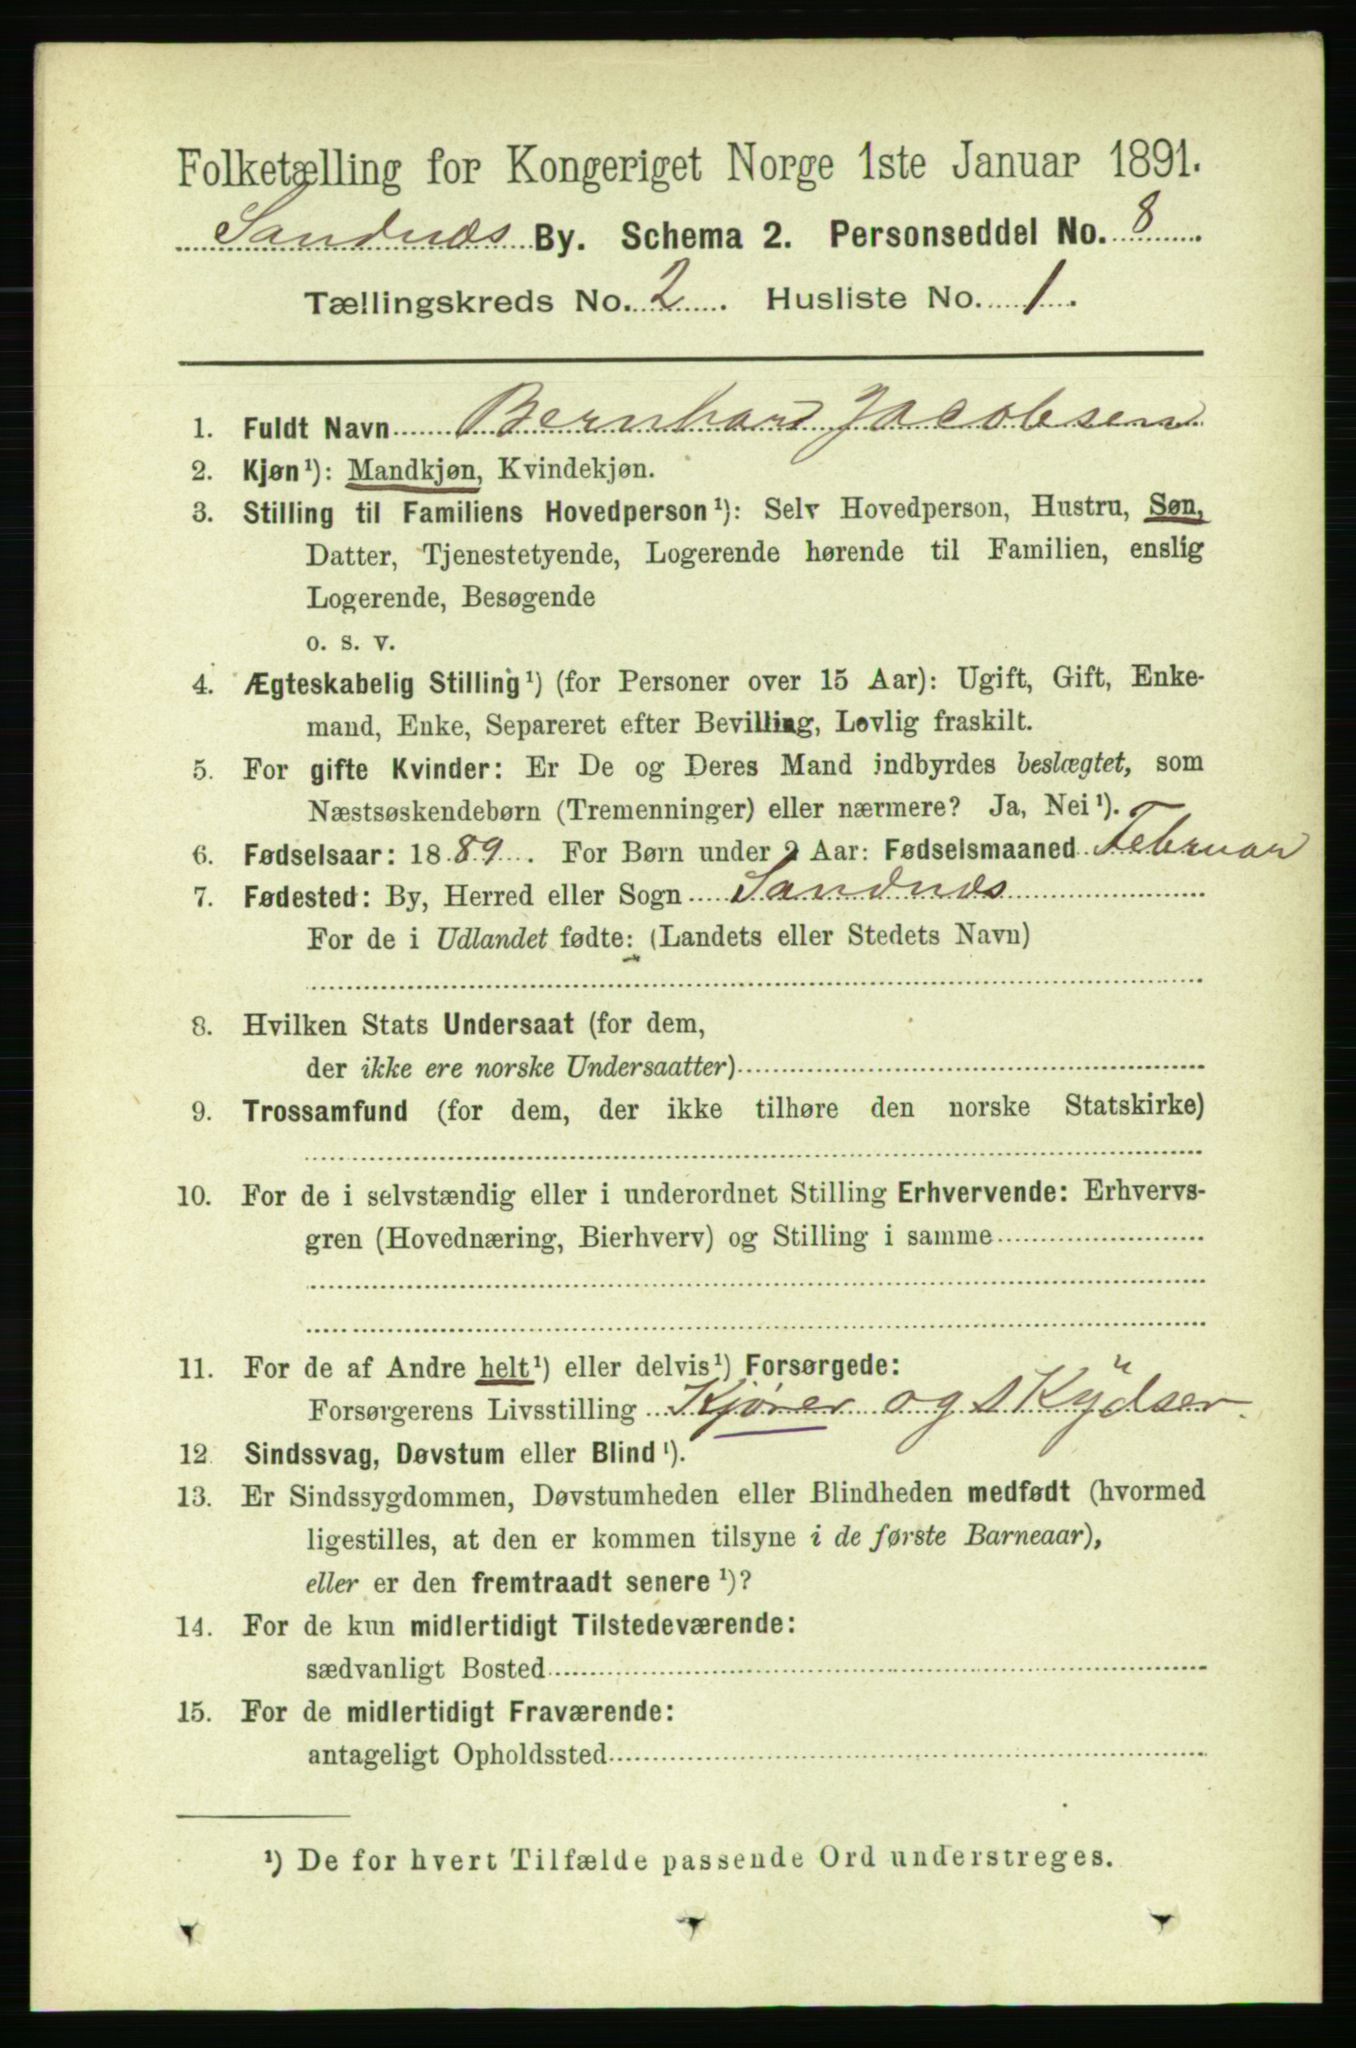 Folketælling for Kongeriget Norge 1ste Januar 1891.
Sandnæs By. Schema 2. Personseddel No. 8
Tællingskreds No. 2. Husliste No. 1.
1. Fuldt Navn Bernhard Jacobsen
2. Kjøn¹): Mandkjøn, Kvindekjøn.
3. Stilling til Familiens Hovedperson¹): Selv Hovedperson, Hustru, Søn,
Datter, Tjenestetyende, Logerende hørende til Familien, enslig
Logerende, Besøgende
o. s. v.
4. Ægteskabelig Stilling¹) (for Personer over 15 Aar): Ugift, Gift, Enke-
mand, Enke, Separeret efter Bevilling, Lovlig fraskilt.
5. For gifte Kvinder: Er De og Deres Mand indbyrdes beslægtet, som
Næstsøskendebørn (Tremenninger) eller nærmere? Ja, Nei¹).
6. Fødselsaar: 1889. For Børn under 2 Aar: Fødselsmaaned Februar
7. Fødested: By, Herred eller Sogn Sandnæs
For de i Udlandet fødte: (Landets eller Stedets Navn)
8. Hvilken Stats Undersaat (for dem,
der ikke ere norske Undersaatter)
9. Trossamfund (for dem, der ikke tilhøre den norske Statskirke)
10. For de i selvstændig eller i underordnet Stilling Erhvervende: Erhvervs-
gren (Hovednæring, Bierhverv) og Stilling i samme
11. For de af Andre helt¹) eller delvis¹) Forsørgede:
Forsørgerens Livsstilling Kjører og sKÿdser.
12. Sindssvag, Døvstum eller Blind¹).
13. Er Sindssygdommen, Døvstumheden eller Blindheden medfødt (hvormed
ligestilles, at den er kommen tilsyne i de første Barneaar),
eller er den fremtraadt senere¹)?
14. For de kun midlertidigt Tilstedeværende:
sædvanligt Bosted
15. For de midlertidigt Fraværende:
antageligt Opholdssted
¹) De for hvert Tilfælde passende Ord understreges.